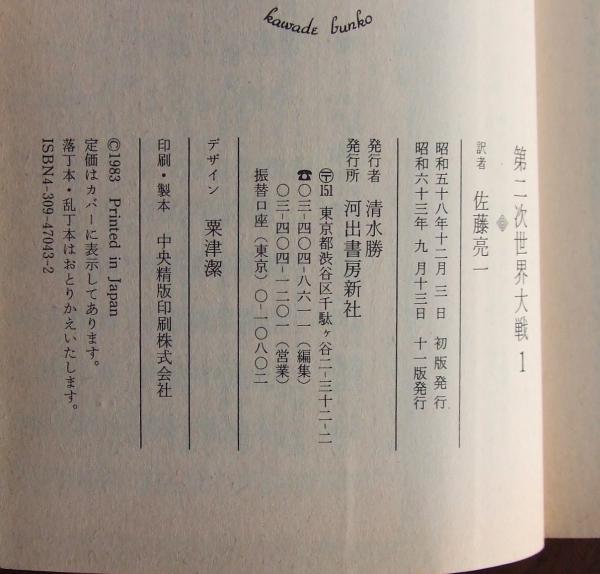 kawade bunko
第二次世界大戦 1
訳者 佐藤亮一
昭和五十八年十二月 三 日 初版発行
昭和六十三年 九 月十三日 十一版発行
発行者 清水勝
発行所 河出書房新社
〒151 東京都渋谷区千駄ヶ谷二-三十二-二
☎〇三-四〇四-八六一一（編集）
〇三-四〇四-一二〇一（営業）
振替口座（東京）〇-一〇八〇二
デザイン 粟津潔
印刷・製本 中央精版印刷株式会社
©1983 Printed in Japan
定価はカバーに表示してあります。
落丁本・乱丁本はおとりかえいたします。
ISBN4-309-47043-2